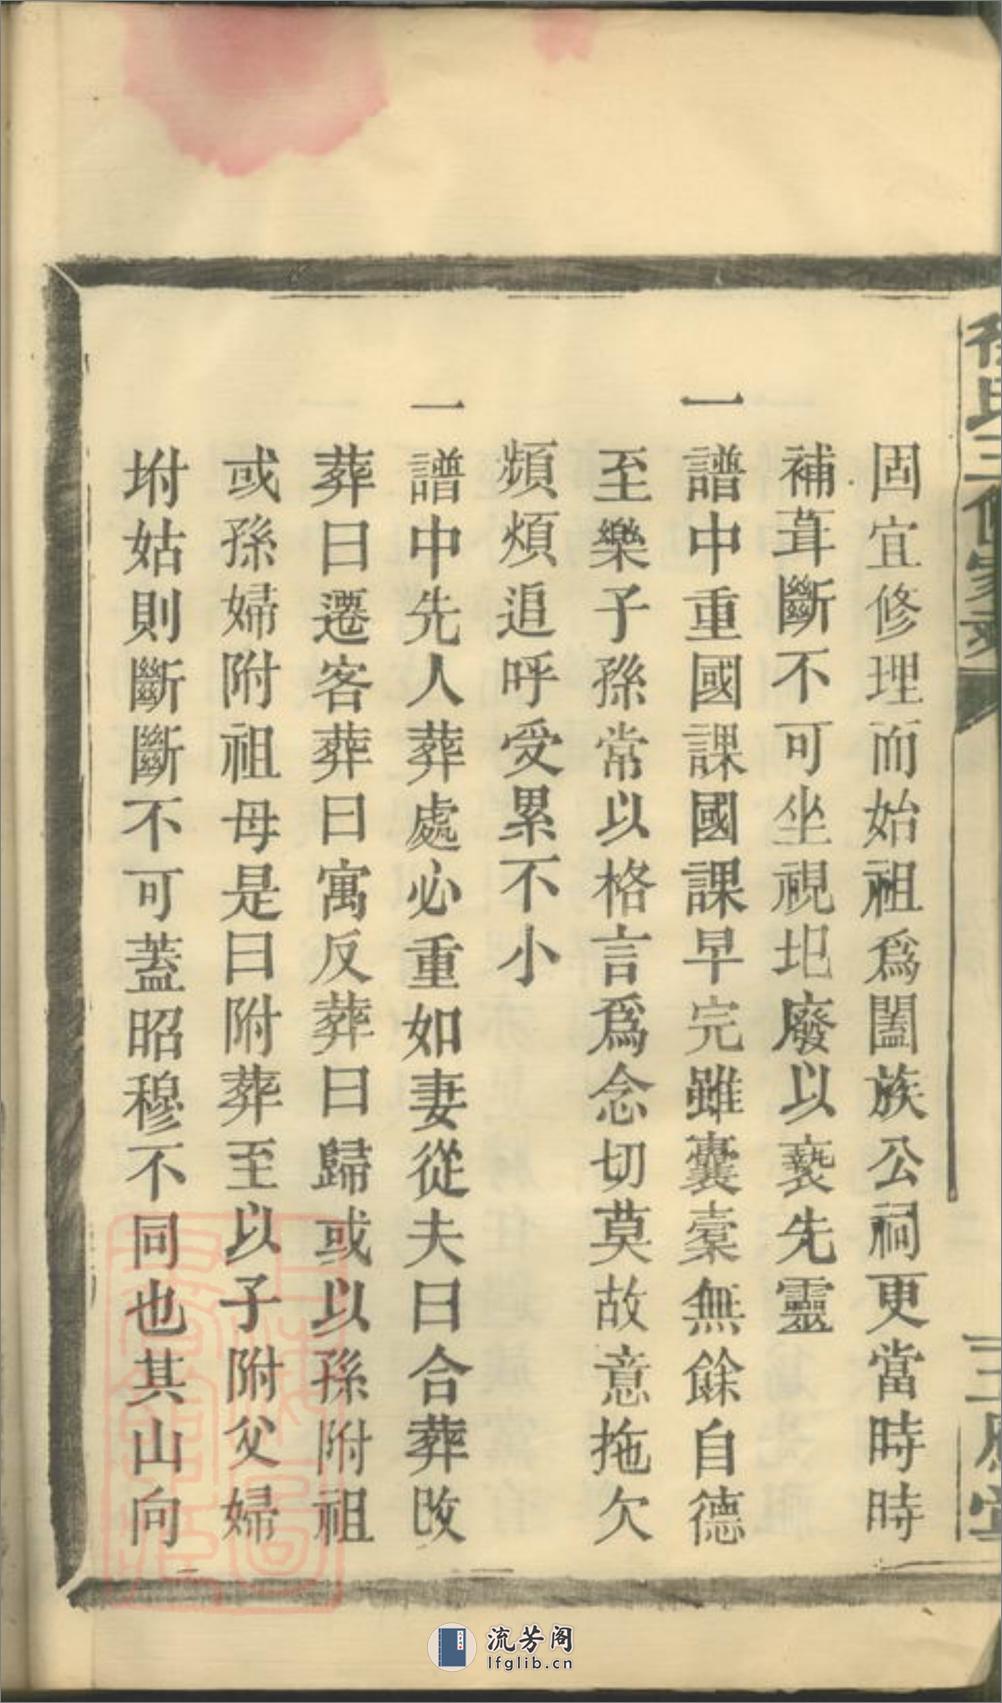 固宜修理而始祖爲闔族公祠更當時時
補葺斷不可坐視圯廢以褻先靈
一 譜中重國課國課早完雖囊橐無餘自德
至樂子孫常以格言爲念切莫故意拖欠
頻煩追呼受累不小
一 譜中先人葬處必重如妻從夫曰合葬改
葬曰遷客葬曰寓反葬曰歸或以孫附祖
或孫婦附祖母是曰附葬至以子附父婦
坿姑則斷斷不可蓋昭穆不同也其山向
流芳阁
lfglib.cn